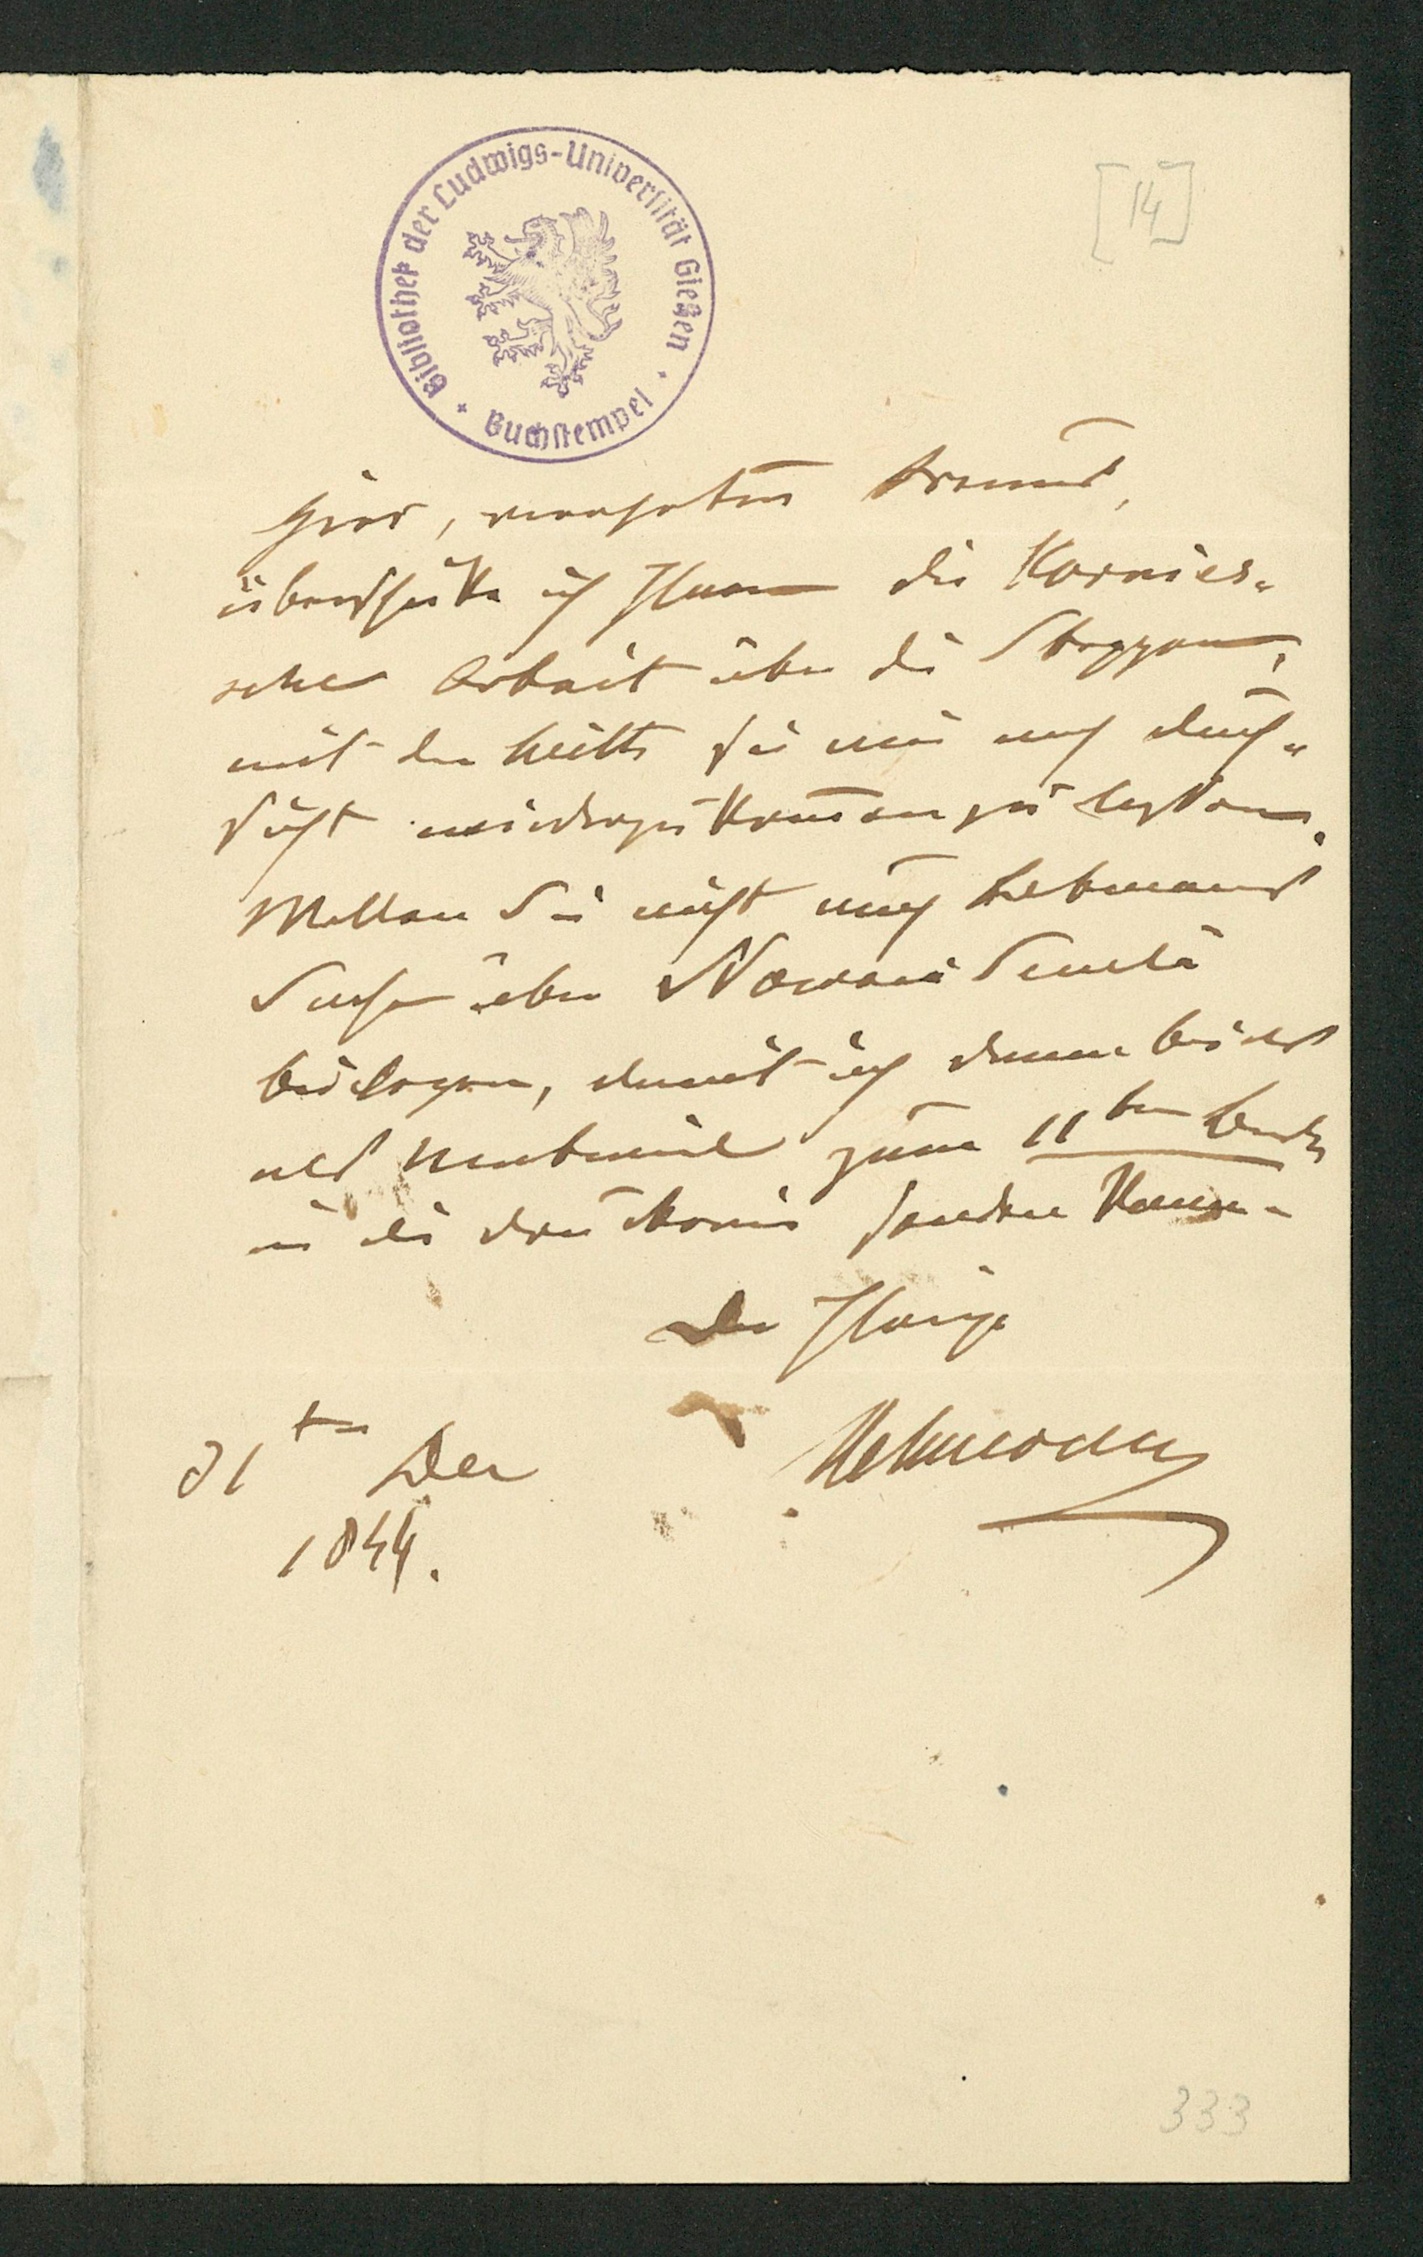 Bibliothek der Ludwigs-Universität Gießen
Buchstempel
[14]
Hier, verehrter Freund,
überschicke ich Ihnen die Kornies-
sche Arbeit über die Steppen,
mit der Bitte sie mir nach durch-
sicht wieder zukommen zu lassen.
Wollen Sie nicht auch Lehmanns
Sache über Nowaja Semlä
beilegen, damit ich dann beides
als Material zum 11ten Bande
in die druckerei senden kann.
Der Ihrige
Helmersen
31ten Dec
1844.
333